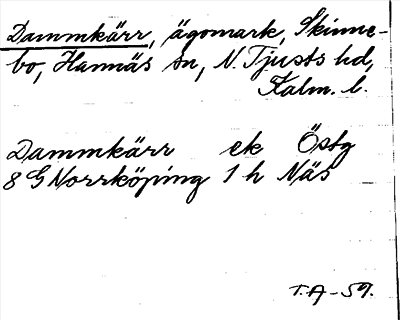 Dammkärr, ägomark, Skinne-
bo, Hannäs sn, N. Tjusts hd,
Kalm. l.
Dammkärr ek Östg
8 G Norrköping 1 h Näs
T.A-59.